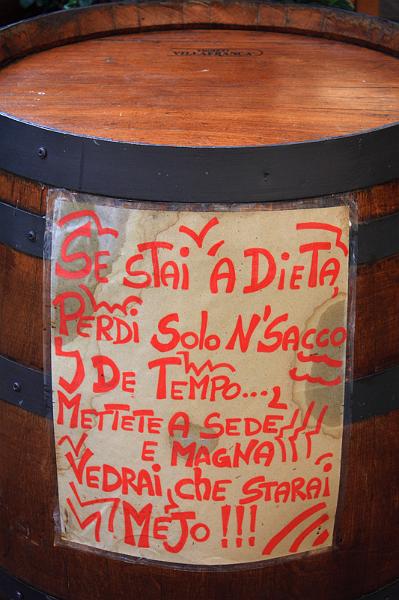 VILLAFRANCA
SE STAI A DIETA,
PERDI SOLO N'SACCO
DE TEMPO...
METTETE A SEDE,
E MAGNA
VEDRAI, CHE STARAI
MEJO !!!